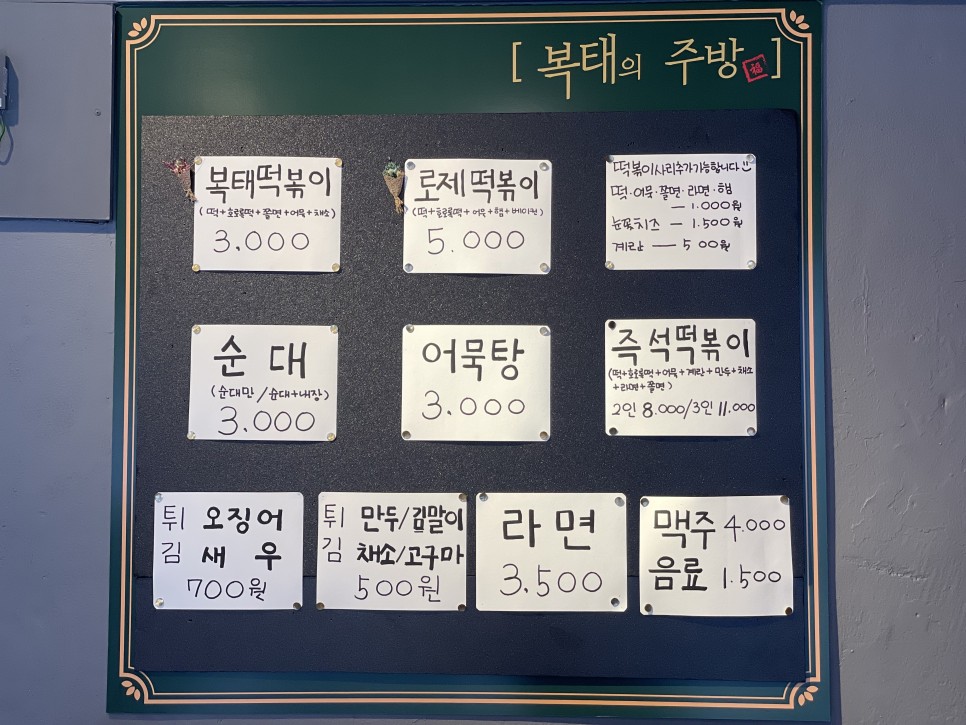 [ 복태의 주방 福 ]
복태떡볶이
(떡+호로록떡+쫄면+어묵+채소)
3,000
로제떡볶이
(떡+호로록떡+어묵+햄+베이컨)
5.000
떡볶이사리추가가능합니다!!
떡·어묵·쫄면·라면·햄
— 1.000원
눈꽃치즈 — 1.500원
계란 — 500원
순대
(순대만/순대+내장)
3,000
어묵탕
3.000
즉석떡볶이
(떡+호로록떡+어묵+계란+만두+채소
+라면+쫄면)
2인 8.000/3인 11.000
튀 오징어
김 새우
700원
튀 만두/김말이
김 채소/고구마
500원
라면
3.500
맥주 4.000
음료 1.500